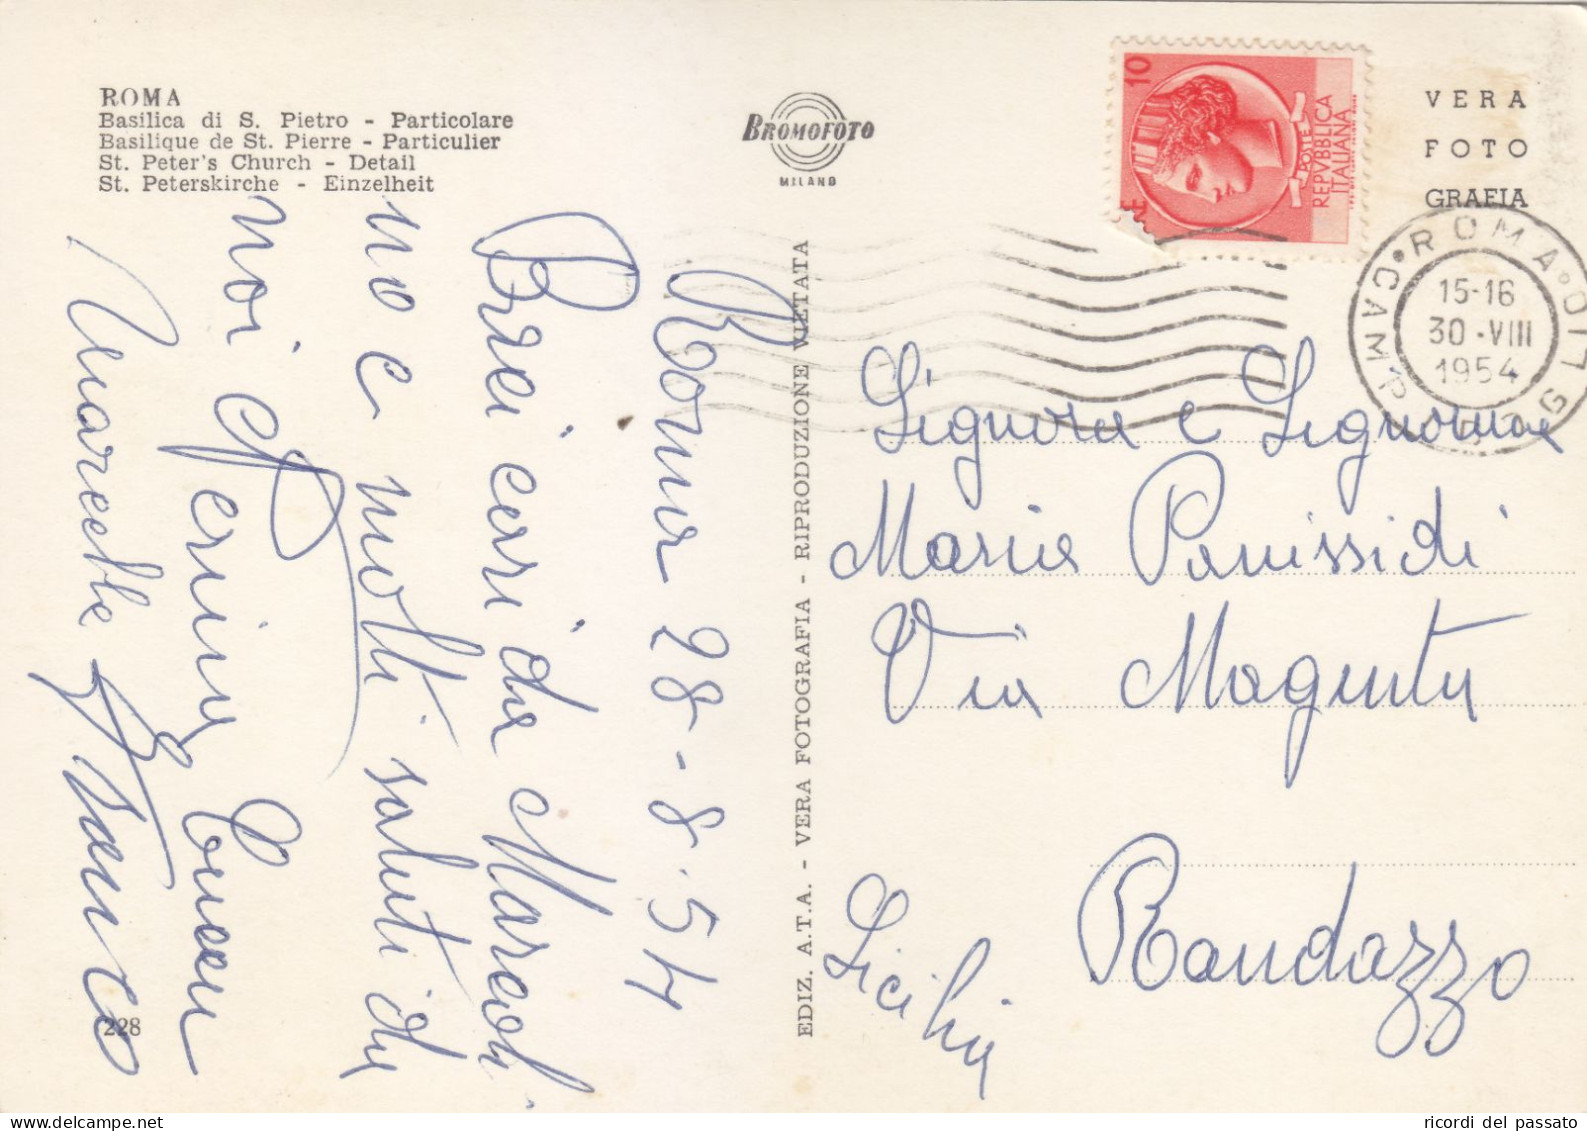 ROMA
Basilica di S. Pietro - Particolare
Basilique de St. Pierre - Particulier
St. Peter's Church - Detail
St. Peterskirche - Einzelheit
BROMOFOTO
MILANO
10
POSTE
REPVBBLICA
ITALIANA
VERA
FOTO
GRAFIA
ROMA
15-16
30·VIII
1954
Roma 28-8-54
Baci cari da Marcelli
no e molti saluti da
noi
Marcella Franco
228
EDIZ. A.T.A. - VERA FOTOGRAFIA - RIPRODUZIONE VIETATA
Signora e Signorina
Maria Panissidi
Via Magenta
Randazzo
Sicilia
ricordi del passato